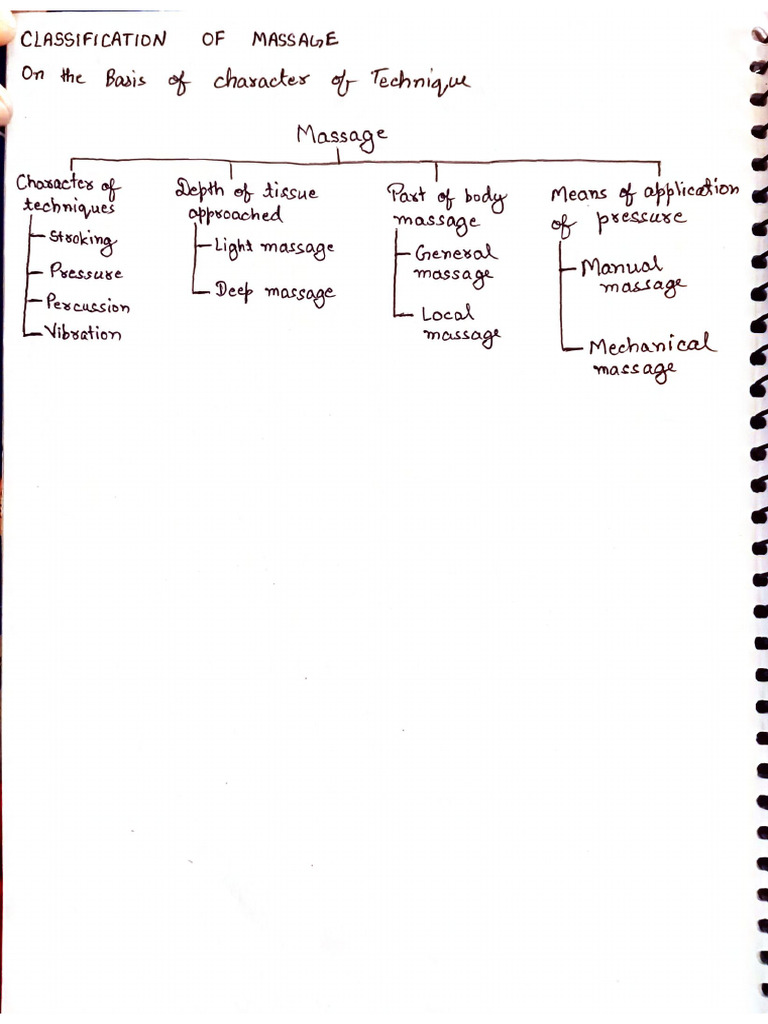 CLASSIFICATION OF MASSAGE
On the Basis of character of Technique
Massage
Character of
techniques
Stroking
Pressure
Percussion
Vibration
Depth of tissue
approached
Light massage
Deep massage
Part of body
massage
General
massage
Local
massage
Means of application
of pressure
Manual
massage
Mechanical
massage